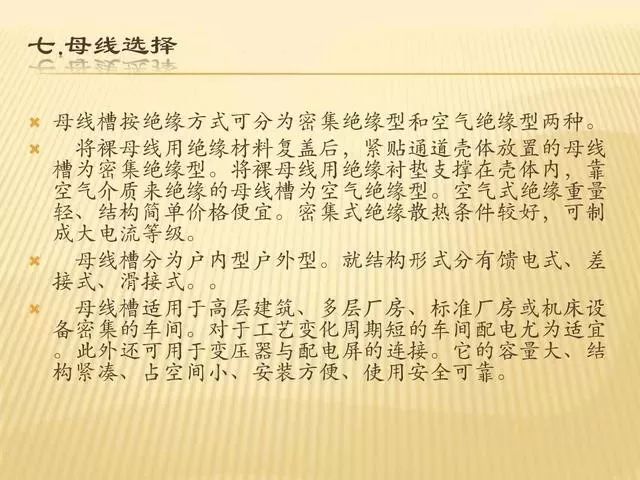 七.母线选择
母线槽按绝缘方式可分为密集绝缘型和空气绝缘型两种。
将裸母线用绝缘材料复盖后，紧贴通道壳体放置的母线
槽为密集绝缘型。将裸母线用绝缘衬垫支撑在壳体内，靠
空气介质来绝缘的母线槽为空气绝缘型。空气式绝缘重量
轻、结构简单价格便宜。密集式绝缘散热条件较好，可制
成大电流等级。
母线槽分为户内型户外型。就结构形式分有馈电式、差
接式、滑接式。。
母线槽适用于高层建筑、多层厂房、标准厂房或机床设
备密集的车间。对于工艺变化周期短的车间配电尤为适宜
。此外还可用于变压器与配电屏的连接。它的容量大、结
构紧凑、占空间小、安装方便、使用安全可靠。